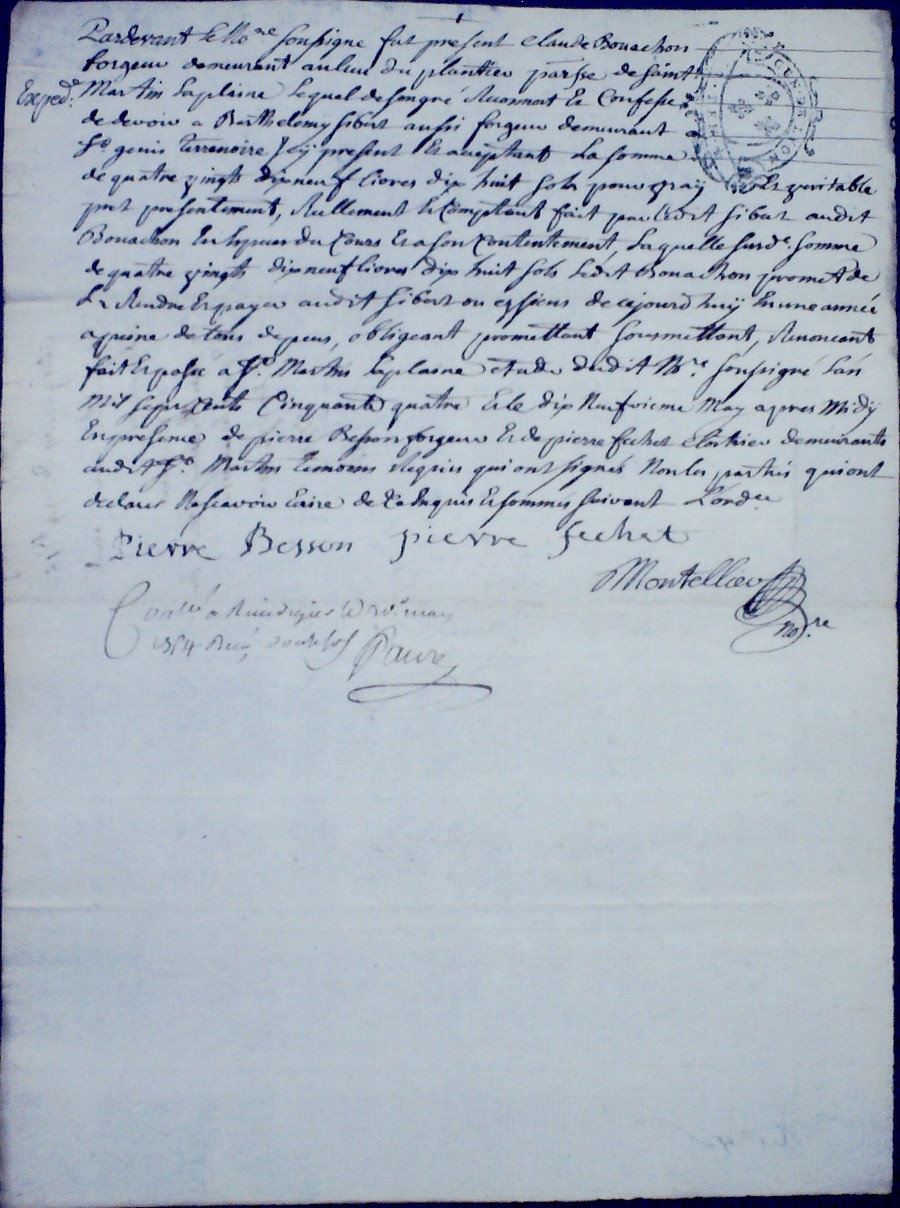 Pardevant le No.re soussigné fut présent Claude Bouachon
forgeur demeurant au lieu du plantier parsse de saint
Exped.e Martin Laplaine lequel de son gré Reconnoit Et Confesse
de devoir a Barthelemy Sibert aussi forgeur demeurant
St genis terrenoire cy present Et acceptant La somme
de quatre vingt dixneuf livres dix huit sols pour vray Et veritable
pret presentement, Reellement Et Comptant fait par Ledit Sibert audit
Bouachon En Espece du Cours Et a son Contentement, Laquelle surd.e somme
de quatre vingt dixneuf livres dix huit sols Ledit Bouachon promet de
La Rendre Et payer audit Sibert ou es siens de cejourdhuy En une année
a peine de tous depens, obligeant promettant soumettant, Renoncant
fait Et passé a St. Martin Laplaine etude dudit No.re soussigné L'an
Mil sept Cents Cinquante quatre Et le dix Neufvieme May apres Midy
En presence de pierre Besson forgeur Et de pierre fechet clotrier demeurants
audit St. Martin temoins Requis qui ont signés Non les parties qui ont
declaré Ne scavoir Ecrire de Ce Enquis Et sommés suivant L'ord.ce
Pierre Besson pierre fechet
Montellier
No.re
Con.lé a Rivedegier le may
1754 Reçu douze sols Faure